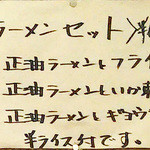 ラーメンセット
正油ラーメンとフライ
正油ラーメンといか
正油ラーメンとギョウ
半ライス付です。